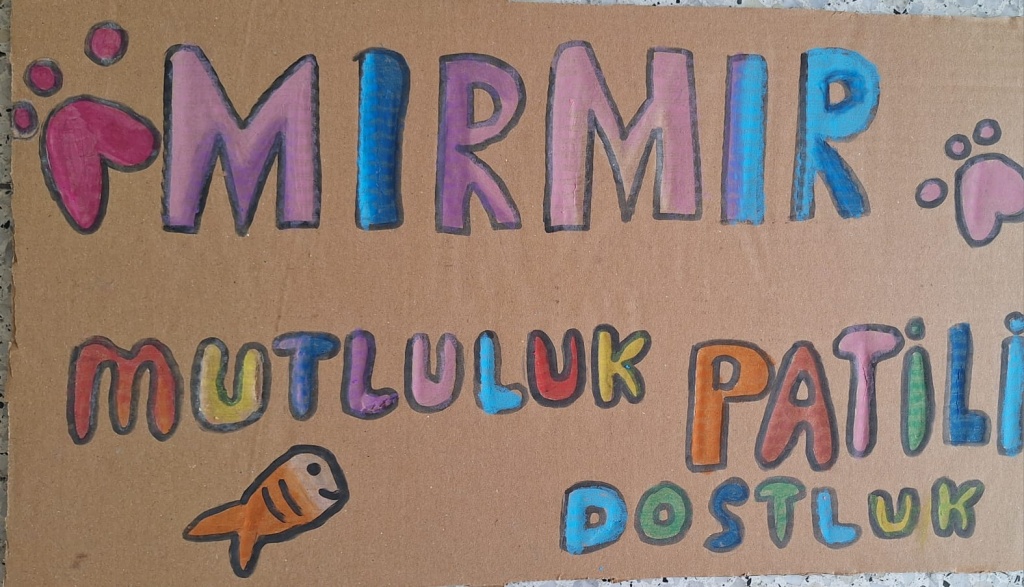 MIRMIR
MUTLULUK PATİLİ
DOSTLUK